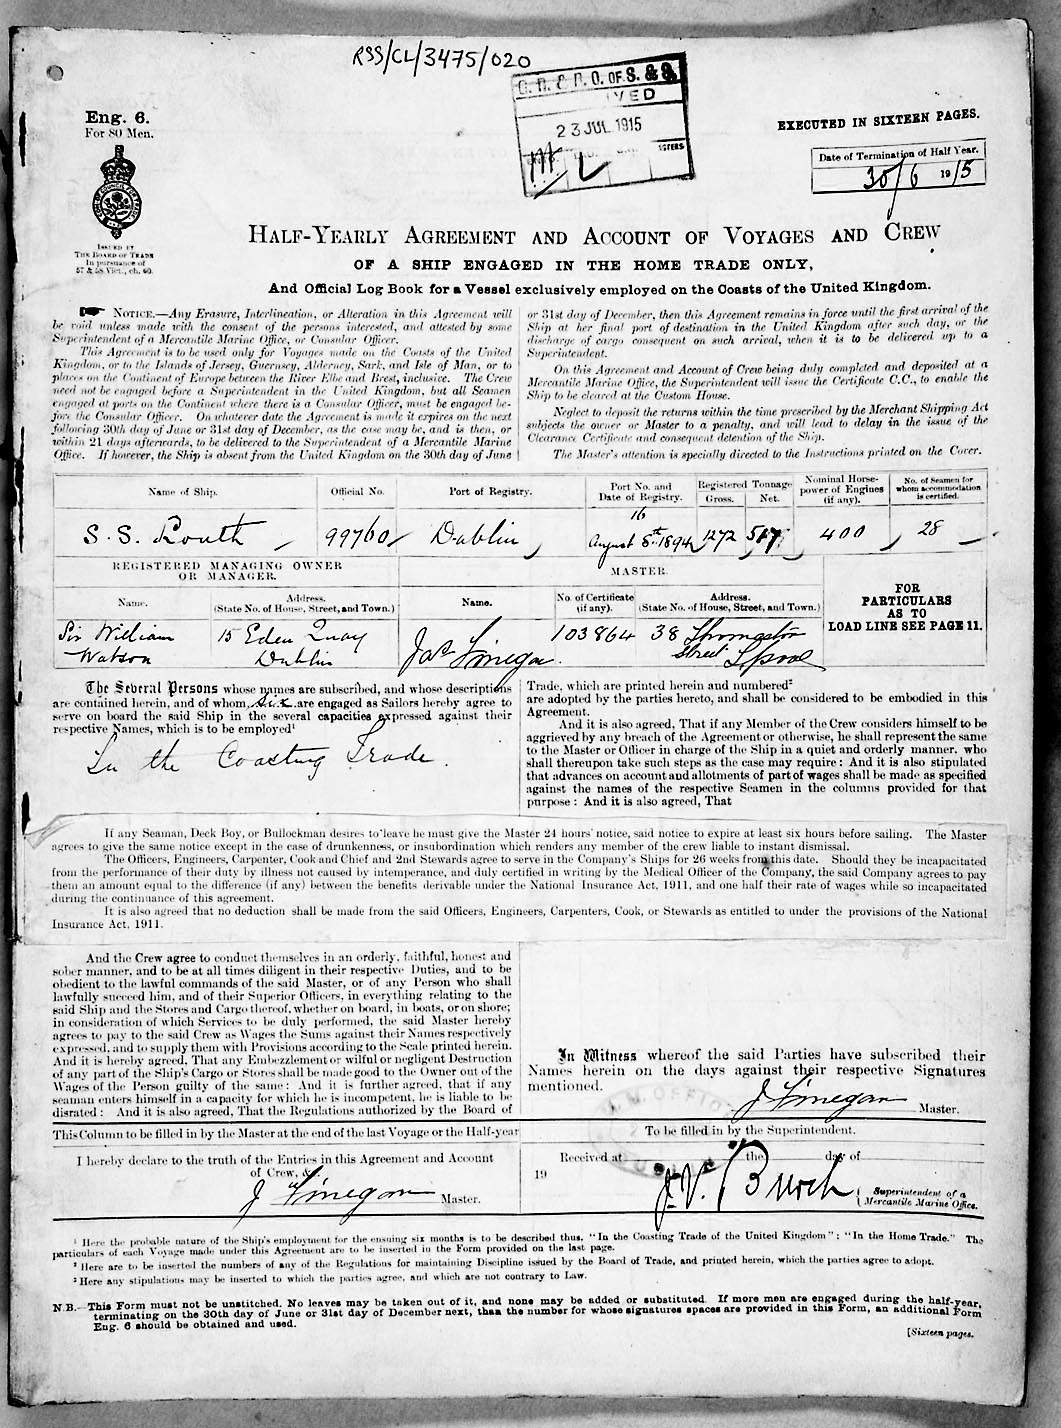 RSS/CL/3475/020
G. R. & R. O. OF S. & S.
IVED
23 JUL 1915
Eng. 6.
For 80 Men.
EXECUTED IN SIXTEEN PAGES.
Date of Termination of Half Year.
30/6 1915
ISSUED BY
THE BOARD OF TRADE
In pursuance of
57 & 58 Vict., ch. 60.
HALF-YEARLY AGREEMENT AND ACCOUNT OF VOYAGES AND CREW
OF A SHIP ENGAGED IN THE HOME TRADE ONLY,
And Official Log Book for a Vessel exclusively employed on the Coasts of the United Kingdom.
NOTICE.—Any Erasure, Interlineation, or Alteration in this Agreement will
be void unless made with the consent of the persons interested, and attested by some
Superintendent of a Mercantile Marine Office, or Consular Officer.
This Agreement is to be used only for Voyages made on the Coasts of the United
Kingdom, or to the Islands of Jersey, Guernsey, Alderney, Sark, and Isle of Man, or to
places on the Continent of Europe between the River Elbe and Brest, inclusive. The Crew
need not be engaged before a Superintendent in the United Kingdom, but all Seamen
engaged at ports on the Continent where there is a Consular Officer, must be engaged be-
fore the Consular Officer. On whatever date the Agreement is made it expires on the next
following 30th day of June or 31st day of December, as the case may be, and is then, or
within 21 days afterwards, to be delivered to the Superintendent of a Mercantile Marine
Office. If however, the Ship is absent from the United Kingdom on the 30th day of June
or 31st day of December, then this Agreement remains in force until the first arrival of the
Ship at her final port of destination in the United Kingdom after such day, or the
discharge of cargo consequent on such arrival, when it is to be delivered up to a
Superintendent.
On this Agreement and Account of Crew being duly completed and deposited at a
Mercantile Marine Office, the Superintendent will issue the Certificate C.C., to enable the
Ship to be cleared at the Custom House.
Neglect to deposit the returns within the time prescribed by the Merchant Shipping Act
subjects the owner or Master to a penalty, and will lead to delay in the issue of the
Clearance Certificate and consequent detention of the Ship.
The Master's attention is specially directed to the Instructions printed on the Cover.
Name of Ship. Official No. Port of Registry. Port No. and Date of Registry. Registered Tonnage Gross. Net. Nominal Horse-power of Engines (if any). No. of Seamen for whom accommodation is certified.
S.S. Louth 99760 Dublin 16 August 8th 1894 1272 517 400 28
REGISTERED MANAGING OWNER
OR MANAGER.
MASTER.
Name. Address. (State No. of House, Street, and Town.) Name. No. of Certificate (if any). Address. (State No. of House, Street, and Town.)
FOR
PARTICULARS
AS TO
LOAD LINE SEE PAGE 11.
Sir William 15 Eden Quay Jas Finegan. 103864 38 Thomaston
Watson Dublin Street Lpool
The Several Persons whose names are subscribed, and whose descriptions
are contained herein, and of whom, six are engaged as Sailors hereby agree to
serve on board the said Ship in the several capacities expressed against their
respective Names, which is to be employed¹
In the Coasting Trade.
Trade, which are printed herein and numbered²
are adopted by the parties hereto, and shall be considered to be embodied in this
Agreement.
And it is also agreed, That if any Member of the Crew considers himself to be
aggrieved by any breach of the Agreement or otherwise, he shall represent the same
to the Master or Officer in charge of the Ship in a quiet and orderly manner, who
shall thereupon take such steps as the case may require: And it is also stipulated
that advances on account and allotments of part of wages shall be made as specified
against the names of the respective Seamen in the columns provided for that
purpose: And it is also agreed, That
If any Seaman, Deck Boy, or Bullockman desires to leave he must give the Master 24 hours' notice, said notice to expire at least six hours before sailing. The Master
agrees to give the same notice except in the case of drunkenness, or insubordination which renders any member of the crew liable to instant dismissal.
The Officers, Engineers, Carpenter, Cook and Chief and 2nd Stewards agree to serve in the Company's Ships for 26 weeks from this date. Should they be incapacitated
from the performance of their duty by illness not caused by intemperance, and duly certified in writing by the Medical Officer of the Company, the said Company agrees to pay
them an amount equal to the difference (if any) between the benefits derivable under the National Insurance Act, 1911, and one half their rate of wages while so incapacitated
during the continuance of this agreement.
It is also agreed that no deduction shall be made from the said Officers, Engineers, Carpenters, Cook, or Stewards as entitled to under the provisions of the National
Insurance Act, 1911.
And the Crew agree to conduct themselves in an orderly, faithful, honest and
sober manner, and to be at all times diligent in their respective Duties, and to be
obedient to the lawful commands of the said Master, or of any Person who shall
lawfully succeed him, and of their Superior Officers, in everything relating to the
said Ship and the Stores and Cargo thereof, whether on board, in boats, or on shore;
in consideration of which Services to be duly performed, the said Master hereby
agrees to pay to the said Crew as Wages the Sums against their Names respectively
expressed, and to supply them with Provisions according to the Scale printed herein.
And it is hereby agreed, That any Embezzlement or wilful or negligent Destruction
of any part of the Ship's Cargo or Stores shall be made good to the Owner out of the
Wages of the Person guilty of the same: And it is further agreed, that if any
seaman enters himself in a capacity for which he is incompetent, he is liable to be
disrated: And it is also agreed, That the Regulations authorized by the Board of
In Witness whereof the said Parties have subscribed their
Names herein on the days against their respective Signatures
mentioned.
M.M. OFFICE
J Finegan Master.
This Column to be filled in by the Master at the end of the last Voyage or the Half-year
To be filled in by the Superintendent.
I hereby declare to the truth of the Entries in this Agreement and Account
of Crew, &c.
J Finegan Master.
Received at the day of
19
J.V. Burch Superintendent of a
Mercantile Marine Office.
¹ Here the probable nature of the Ship's employment for the ensuing six months is to be described thus, "In the Coasting Trade of the United Kingdom"; "In the Home Trade." The
particulars of each Voyage made under this Agreement are to be inserted in the Form provided on the last page.
² Here are to be inserted the numbers of any of the Regulations for maintaining Discipline issued by the Board of Trade, and printed herein, which the parties agree to adopt.
³ Here any stipulations may be inserted to which the parties agree, and which are not contrary to Law.
N.B.—This Form must not be unstitched. No leaves may be taken out of it, and none may be added or substituted. If more men are engaged during the half-year,
terminating on the 30th day of June or 31st day of December next, than the number for whose signatures spaces are provided in this Form, an additional Form
Eng. 6 should be obtained and used.
[Sixteen pages.